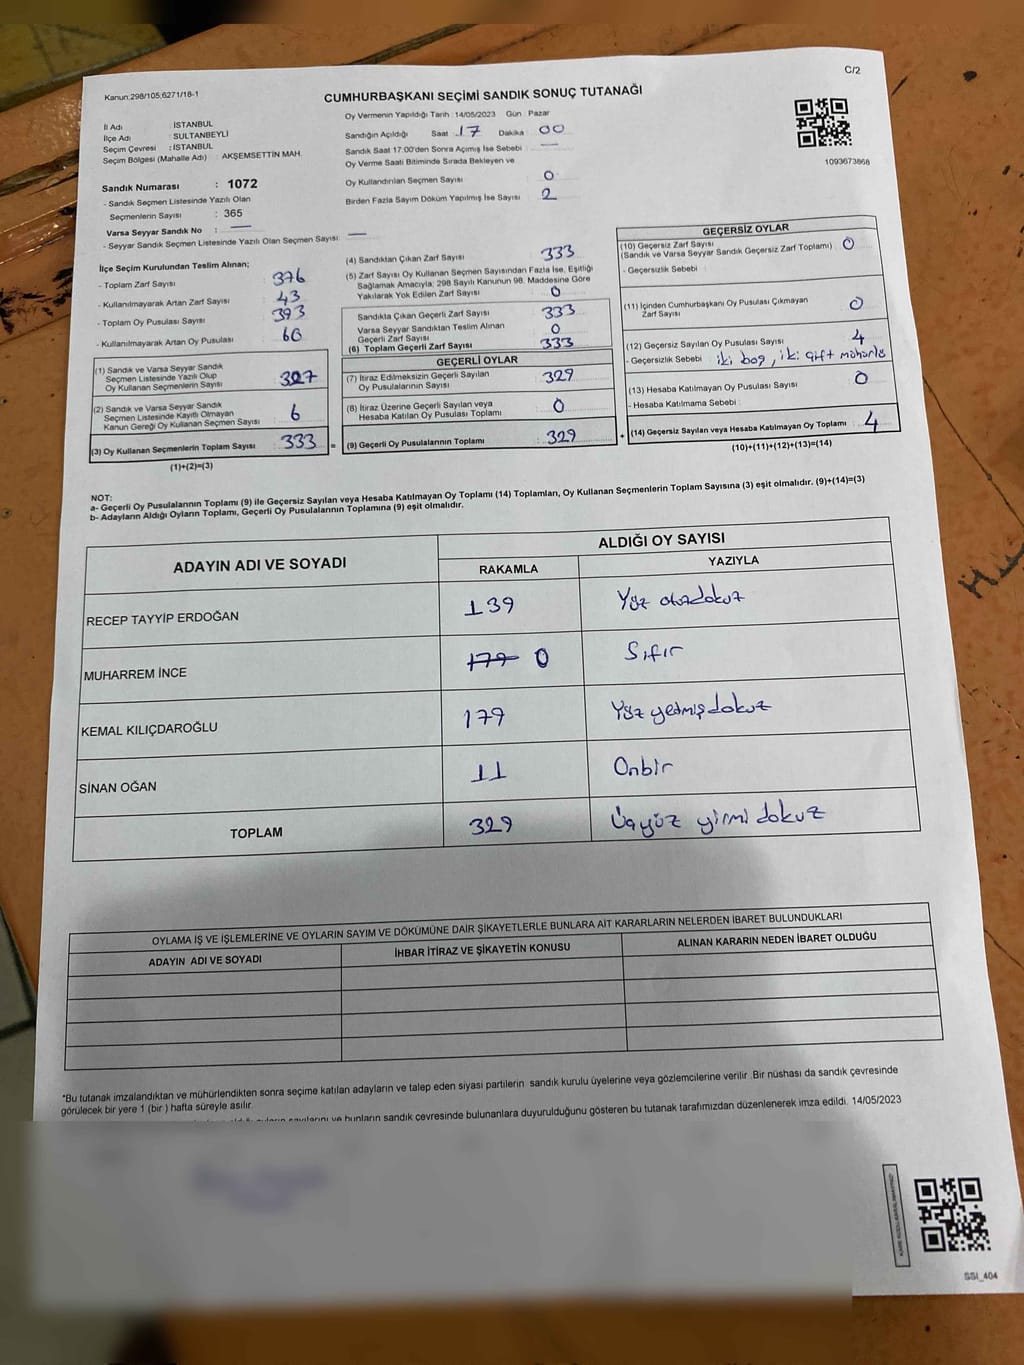 C/2
Kanun:298/105;6271/18-1
CUMHURBAŞKANI SEÇİMİ SANDIK SONUÇ TUTANAĞI
İl Adı : İSTANBUL
İlçe Adı : SULTANBEYLİ
Seçim Çevresi : İSTANBUL
Seçim Bölgesi (Mahalle Adı) : AKŞEMSETTİN MAH.
Sandık Numarası : 1072
- Sandık Seçmen Listesinde Yazılı Olan
Seçmenlerin Sayısı : 365
Varsa Seyyar Sandık No : —
- Seyyar Sandık Seçmen Listesinde Yazılı Olan Seçmen Sayısı : —
Oy Vermenin Yapıldığı Tarih :14/05/2023 Gün : Pazar
Sandığın Açıldığı Saat : 17 Dakika : 00
Sandık Saat 17:00'den Sonra Açılmış İse Sebebi : —
Oy Verme Saati Bitiminde Sırada Bekleyen ve
Oy Kullandırılan Seçmen Sayısı : 0
Birden Fazla Sayım Döküm Yapılmış İse Sayısı : 2
1093673868
İlçe Seçim Kurulundan Teslim Alınan;
- Toplam Zarf Sayısı : 376
- Kullanılmayarak Artan Zarf Sayısı : 43
- Toplam Oy Pusulası Sayısı : 393
- Kullanılmayarak Artan Oy Pusulası : 60
(1) Sandık ve Varsa Seyyar Sandık
Seçmen Listesinde Yazılı Olup
Oy Kullanan Seçmenlerin Sayısı : 327
(2) Sandık ve Varsa Seyyar Sandık
Seçmen Listesinde Kayıtlı Olmayan
Kanun Gereği Oy Kullanan Seçmen Sayısı : 6
(3) Oy Kullanan Seçmenlerin Toplam Sayısı : 333 =
(1)+(2)=(3)
(4) Sandıktan Çıkan Zarf Sayısı : 333
(5) Zarf Sayısı Oy Kullanan Seçmen Sayısından Fazla İse, Eşitliği
Sağlamak Amacıyla; 298 Sayılı Kanunun 98. Maddesine Göre
Yakılarak Yok Edilen Zarf Sayısı : 0
Sandıkta Çıkan Geçerli Zarf Sayısı : 333
Varsa Seyyar Sandıktan Teslim Alınan
Geçerli Zarf Sayısı : 0
(6) Toplam Geçerli Zarf Sayısı : 333
GEÇERLİ OYLAR
(7) İtiraz Edilmeksizin Geçerli Sayılan
Oy Pusulalarının Sayısı : 329
(8) İtiraz Üzerine Geçerli Sayılan veya
Hesaba Katılan Oy Pusulası Toplamı : 0
(9) Geçerli Oy Pusulalarının Toplamı : 329 +
GEÇERSİZ OYLAR
(10) Geçersiz Zarf Sayısı : 0
(Sandık ve Varsa Seyyar Sandık Geçersiz Zarf Toplamı)
- Geçersizlik Sebebi :
(11) İçinden Cumhurbaşkanı Oy Pusulası Çıkmayan
Zarf Sayısı : 0
(12) Geçersiz Sayılan Oy Pusulası Sayısı : 4
- Geçersizlik Sebebi : iki boş, iki çift mühürlü
(13) Hesaba Katılmayan Oy Pusulası Sayısı : 0
- Hesaba Katılmama Sebebi :
(14) Geçersiz Sayılan veya Hesaba Katılmayan Oy Toplamı : 4
(10)+(11)+(12)+(13)=(14)
NOT:
a- Geçerli Oy Pusulalarının Toplamı (9) ile Geçersiz Sayılan veya Hesaba Katılmayan Oy Toplamı (14) Toplamları, Oy Kullanan Seçmenlerin Toplam Sayısına (3) eşit olmalıdır. (9)+(14)=(3)
b- Adayların Aldığı Oyların Toplamı, Geçerli Oy Pusulalarının Toplamına (9) eşit olmalıdır.
ADAYIN ADI VE SOYADI
ALDIĞI OY SAYISI
RAKAMLA YAZIYLA
RECEP TAYYİP ERDOĞAN 139 Yüz otuzdokuz
MUHARREM İNCE 179 0 Sıfır
KEMAL KILIÇDAROĞLU 179 Yüz yetmişdokuz
SİNAN OĞAN 11 Onbir
TOPLAM 329 Üçyüz yirmi dokuz
OYLAMA İŞ VE İŞLEMLERİNE VE OYLARIN SAYIM VE DÖKÜMÜNE DAİR ŞİKAYETLERLE BUNLARA AİT KARARLARIN NELERDEN İBARET BULUNDUKLARI
ADAYIN ADI VE SOYADI İHBAR İTİRAZ VE ŞİKAYETİN KONUSU ALINAN KARARIN NEDEN İBARET OLDUĞU
*Bu tutanak imzalandıktan ve mühürlendikten sonra seçime katılan adayların ve talep eden siyasi partilerin sandık kurulu üyelerine veya gözlemcilerine verilir .Bir nüshası da sandık çevresinde
görülecek bir yere 1 (bir ) hafta süreyle asılır.
sayılarını ve bunların sandık çevresinde bulunanlara duyurulduğunu gösteren bu tutanak tarafımızdan düzenlenerek imza edildi. 14/05/2023
SSI_404